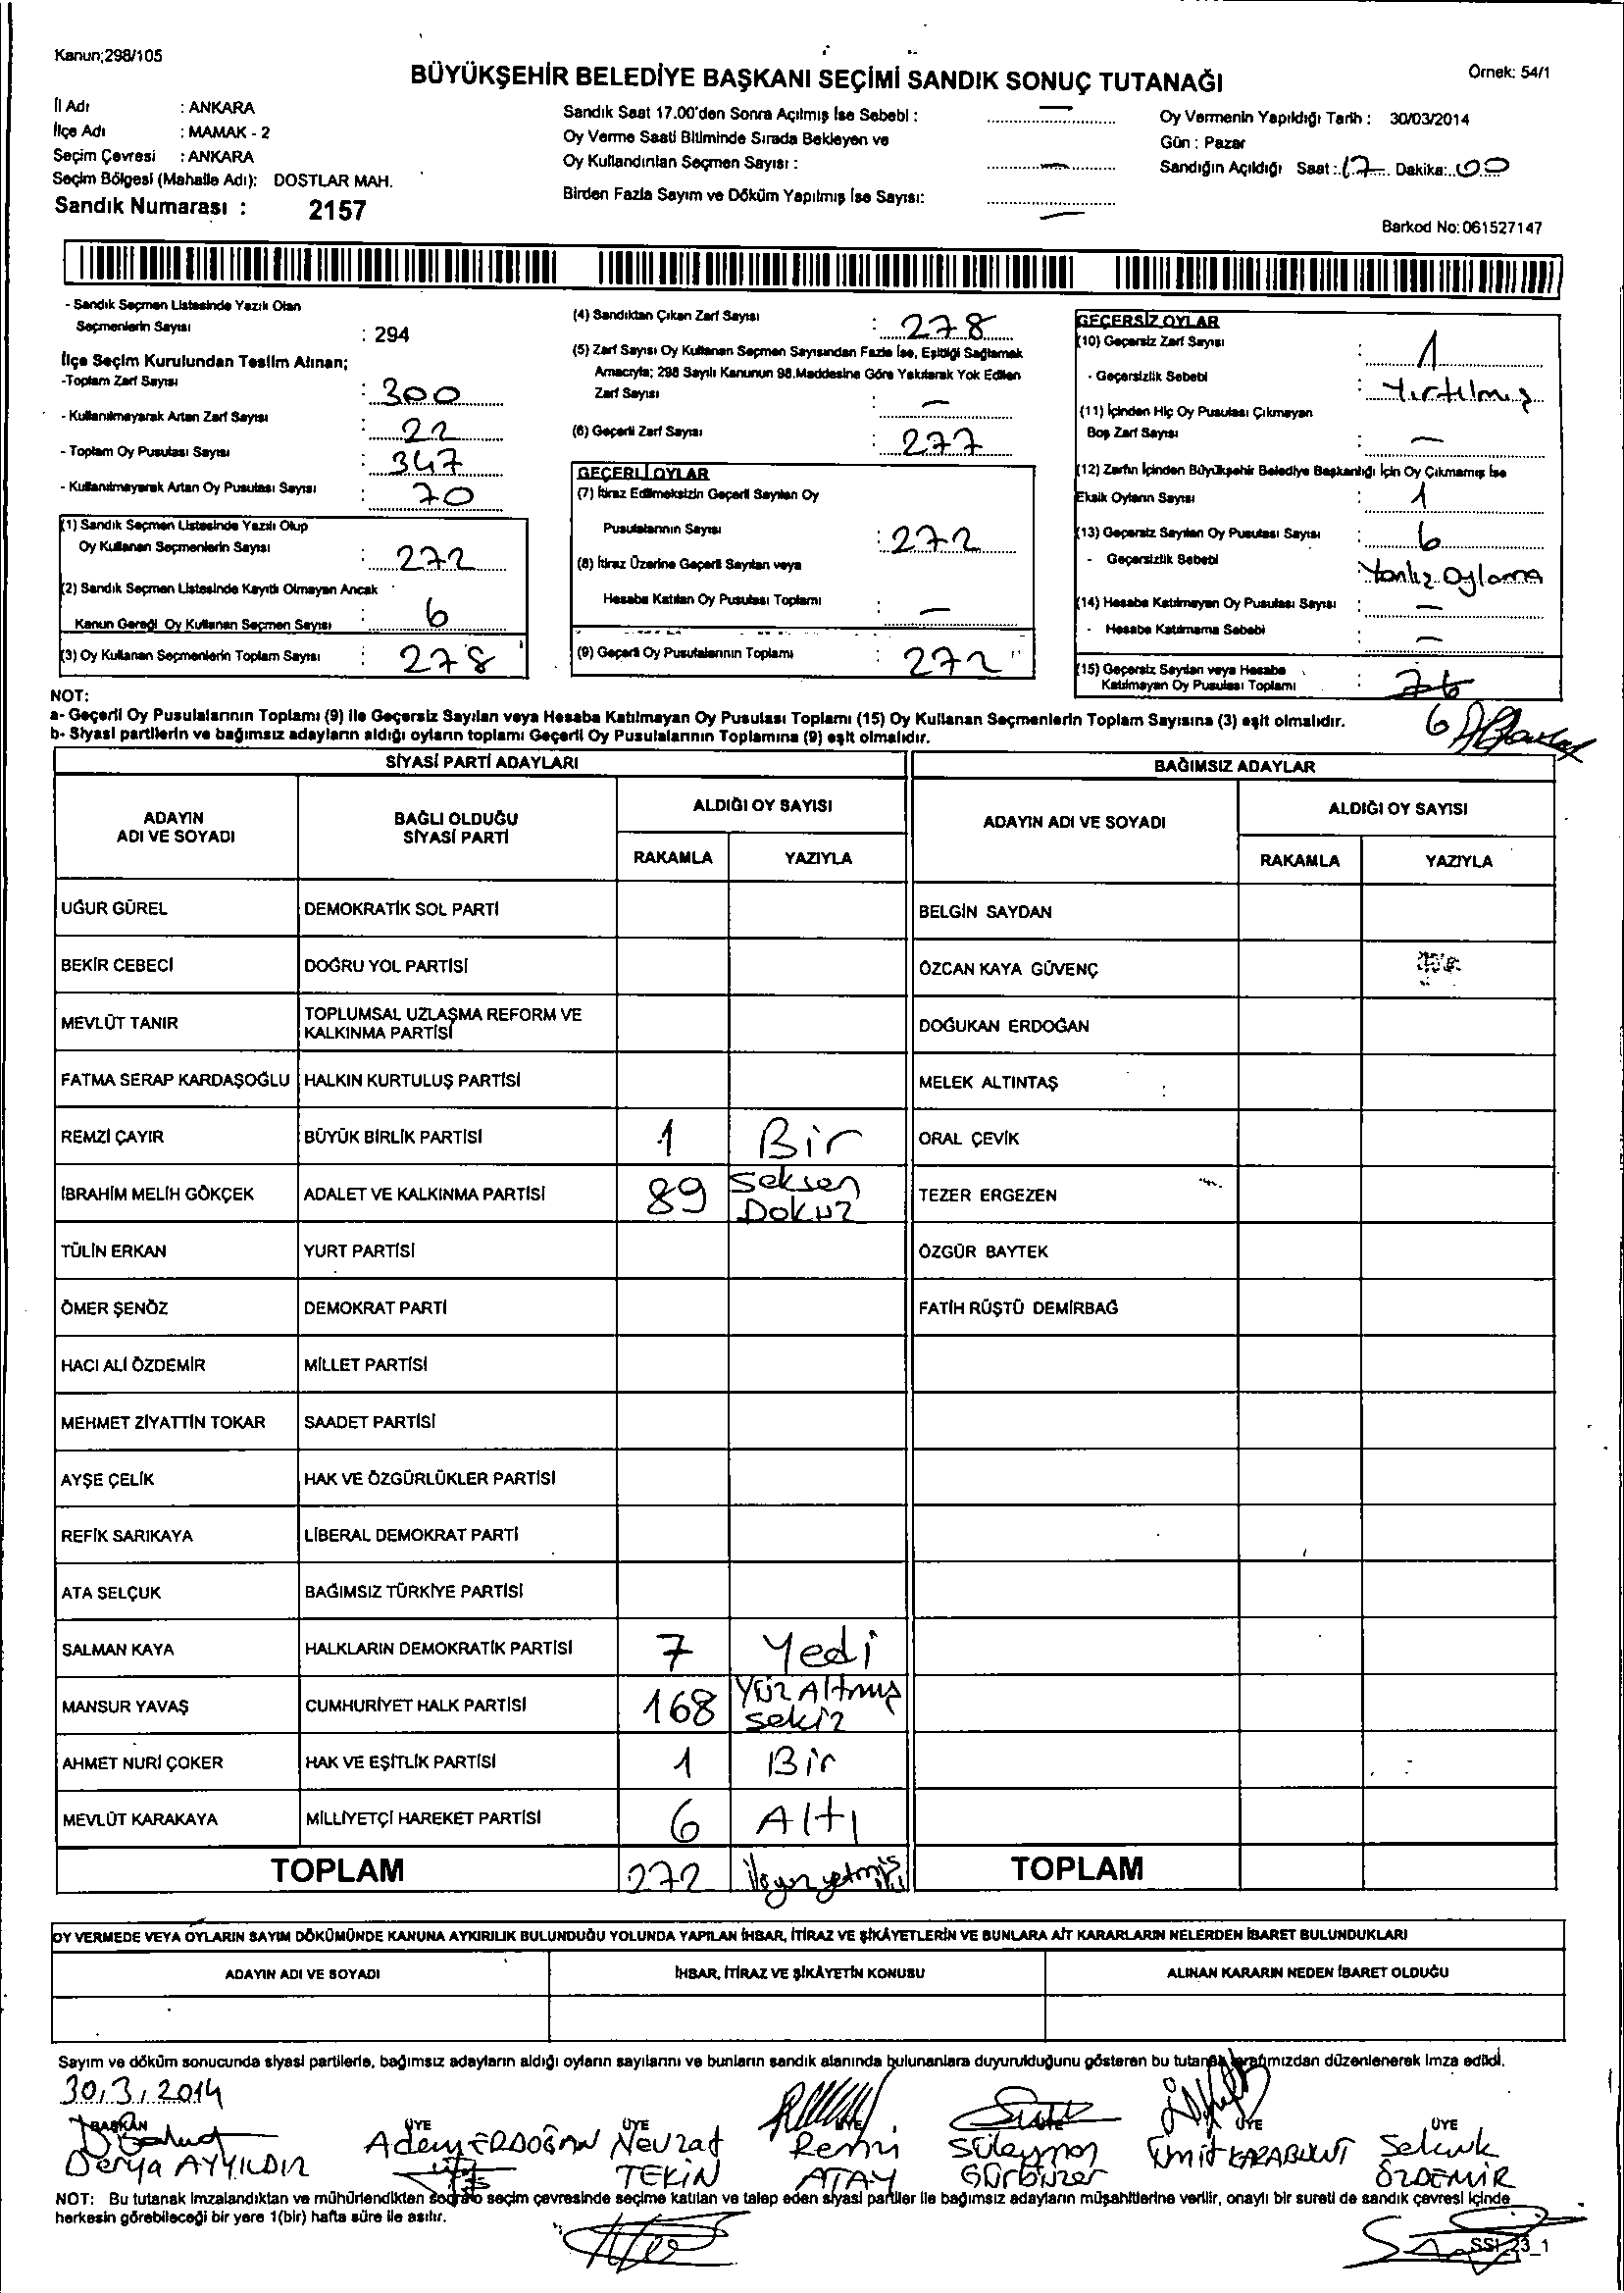 Kanun;298/105
BÜYÜKŞEHİR BELEDİYE BAŞKANI SEÇİMİ SANDIK SONUÇ TUTANAĞI
Örnek: 54/1
İl Adı : ANKARA
İlçe Adı : MAMAK - 2
Seçim Çevresi : ANKARA
Seçim Bölgesi (Mahalle Adı): DOSTLAR MAH.
Sandık Numarası : 2157
Sandık Saat 17.00'den Sonra Açılmış İse Sebebi : —
Oy Verme Saati Bitiminde Sırada Bekleyen ve
Oy Kullandırılan Seçmen Sayısı : —
Birden Fazla Sayım ve Döküm Yapılmış İse Sayısı: —
Oy Vermenin Yapıldığı Tarih : 30/03/2014
Gün : Pazar
Sandığın Açıldığı Saat : 17 Dakika: 00
Barkod No: 061527147
- Sandık Seçmen Listesinde Yazılı Olan
Seçmenlerin Sayısı : 294
İlçe Seçim Kurulundan Teslim Alınan;
-Toplam Zarf Sayısı : 300
- Kullanılmayarak Artan Zarf Sayısı : 22
- Toplam Oy Pusulası Sayısı : 347
- Kullanılmayarak Artan Oy Pusulası Sayısı : 70
(1) Sandık Seçmen Listesinde Yazılı Olup
Oy Kullanan Seçmenlerin Sayısı : 272
(2) Sandık Seçmen Listesinde Kayıtlı Olmayan Ancak
Kanun Gereği Oy Kullanan Seçmen Sayısı : 6
(3) Oy Kullanan Seçmenlerin Toplam Sayısı : 278
(4) Sandıktan Çıkan Zarf Sayısı : 278
(5) Zarf Sayısı Oy Kullanan Seçmen Sayısından Fazla İse, Eşitliği Sağlamak
Amacıyla; 298 Sayılı Kanunun 98.Maddesine Göre Yakılarak Yok Edilen
Zarf Sayısı : —
(6) Geçerli Zarf Sayısı : 277
GEÇERLİ OYLAR
(7) İtiraz Edilmeksizin Geçerli Sayılan Oy
Pusulalarının Sayısı : 272
(8) İtiraz Üzerine Geçerli Sayılan veya
Hesaba Katılan Oy Pusulası Toplamı : —
(9) Geçerli Oy Pusulalarının Toplamı : 272
GEÇERSİZ OYLAR
(10) Geçersiz Zarf Sayısı : 1
- Geçersizlik Sebebi : Yırtılmış
(11) İçinden Hiç Oy Pusulası Çıkmayan
Boş Zarf Sayısı : —
(12) Zarfın İçinden Büyükşehir Belediye Başkanlığı İçin Oy Çıkmamış İse
Eksik Oyların Sayısı : 1
(13) Geçersiz Sayılan Oy Pusulası Sayısı : 6
- Geçersizlik Sebebi : Yanlız Oylama
(14) Hesaba Katılmayan Oy Pusulası Sayısı : —
- Hesaba Katılmama Sebebi : —
(15) Geçersiz Sayılan veya Hesaba
Katılmayan Oy Pusulası Toplamı :
6
NOT:
a- Geçerli Oy Pusulalarının Toplamı (9) ile Geçersiz Sayılan veya Hesaba Katılmayan Oy Pusulası Toplamı (15) Oy Kullanan Seçmenlerin Toplam Sayısına (3) eşit olmalıdır.
b- Siyasi partilerin ve bağımsız adayların aldığı oyların toplamı Geçerli Oy Pusulalarının Toplamına (9) eşit olmalıdır.
SİYASİ PARTİ ADAYLARI BAĞIMSIZ ADAYLAR
ADAYIN ADI VE SOYADI BAĞLI OLDUĞU SİYASİ PARTİ ALDIĞI OY SAYISI ADAYIN ADI VE SOYADI ALDIĞI OY SAYISI
RAKAMLA YAZIYLA RAKAMLA YAZIYLA
UĞUR GÜREL DEMOKRATİK SOL PARTİ BELGİN SAYDAN
BEKİR CEBECİ DOĞRU YOL PARTİSİ ÖZCAN KAYA GÜVENÇ
MEVLÜT TANIR TOPLUMSAL UZLAŞMA REFORM VE KALKINMA PARTİSİ DOĞUKAN ERDOĞAN
FATMA SERAP KARDAŞOĞLU HALKIN KURTULUŞ PARTİSİ MELEK ALTINTAŞ
REMZİ ÇAYIR BÜYÜK BİRLİK PARTİSİ 1 Bir ORAL ÇEVİK
İBRAHİM MELİH GÖKÇEK ADALET VE KALKINMA PARTİSİ 89 Seksen Dokuz TEZER ERGEZEN
TÜLİN ERKAN YURT PARTİSİ ÖZGÜR BAYTEK
ÖMER ŞENÖZ DEMOKRAT PARTİ FATİH RÜŞTÜ DEMİRBAĞ
HACI ALİ ÖZDEMİR MİLLET PARTİSİ
MEHMET ZİYATTİN TOKAR SAADET PARTİSİ
AYŞE ÇELİK HAK VE ÖZGÜRLÜKLER PARTİSİ
REFİK SARIKAYA LİBERAL DEMOKRAT PARTİ
ATA SELÇUK BAĞIMSIZ TÜRKİYE PARTİSİ
SALMAN KAYA HALKLARIN DEMOKRATİK PARTİSİ 7 Yedi
MANSUR YAVAŞ CUMHURİYET HALK PARTİSİ 168 Yüz Altmış sekiz
AHMET NURİ ÇOKER HAK VE EŞİTLİK PARTİSİ 1 Bir
MEVLÜT KARAKAYA MİLLİYETÇİ HAREKET PARTİSİ 6 Altı
TOPLAM 272 TOPLAM
OY VERMEDE VEYA OYLARIN SAYIM DÖKÜMÜNDE KANUNA AYKIRILIK BULUNDUĞU YOLUNDA YAPILAN İHBAR, İTİRAZ VE ŞİKÂYETLERİN VE BUNLARA AİT KARARLARIN NELERDEN İBARET BULUNDUKLARI
ADAYIN ADI VE SOYADI İHBAR, İTİRAZ VE ŞİKÂYETİN KONUSU ALINAN KARARIN NEDEN İBARET OLDUĞU
Sayım ve döküm sonucunda siyasi partilerle, bağımsız adayların aldığı oyların sayılarını ve bunların sandık alanında bulunanlara duyurulduğunu gösteren bu tutanak tarafımızdan düzenlenerek imza edildi.
30/3/2014
BAŞKAN ÜYE ÜYE ÜYE ÜYE ÜYE
Derya AYYILDIZ Adem ERDOĞAN Nevzat TEKİN Remzi ATAY Süleyman Gürbüzer Ümit KARABULUT Selçuk ÖZDEMİR
NOT: Bu tutanak imzalandıktan ve mühürlendikten sonra o seçim çevresinde seçime katılan ve talep eden siyasi partiler ile bağımsız adayların müşahitlerine verilir, onaylı bir sureti de sandık çevresi içinde
herkesin görebileceği bir yere 1(bir) hafta süre ile asılır.
SSI_23_1